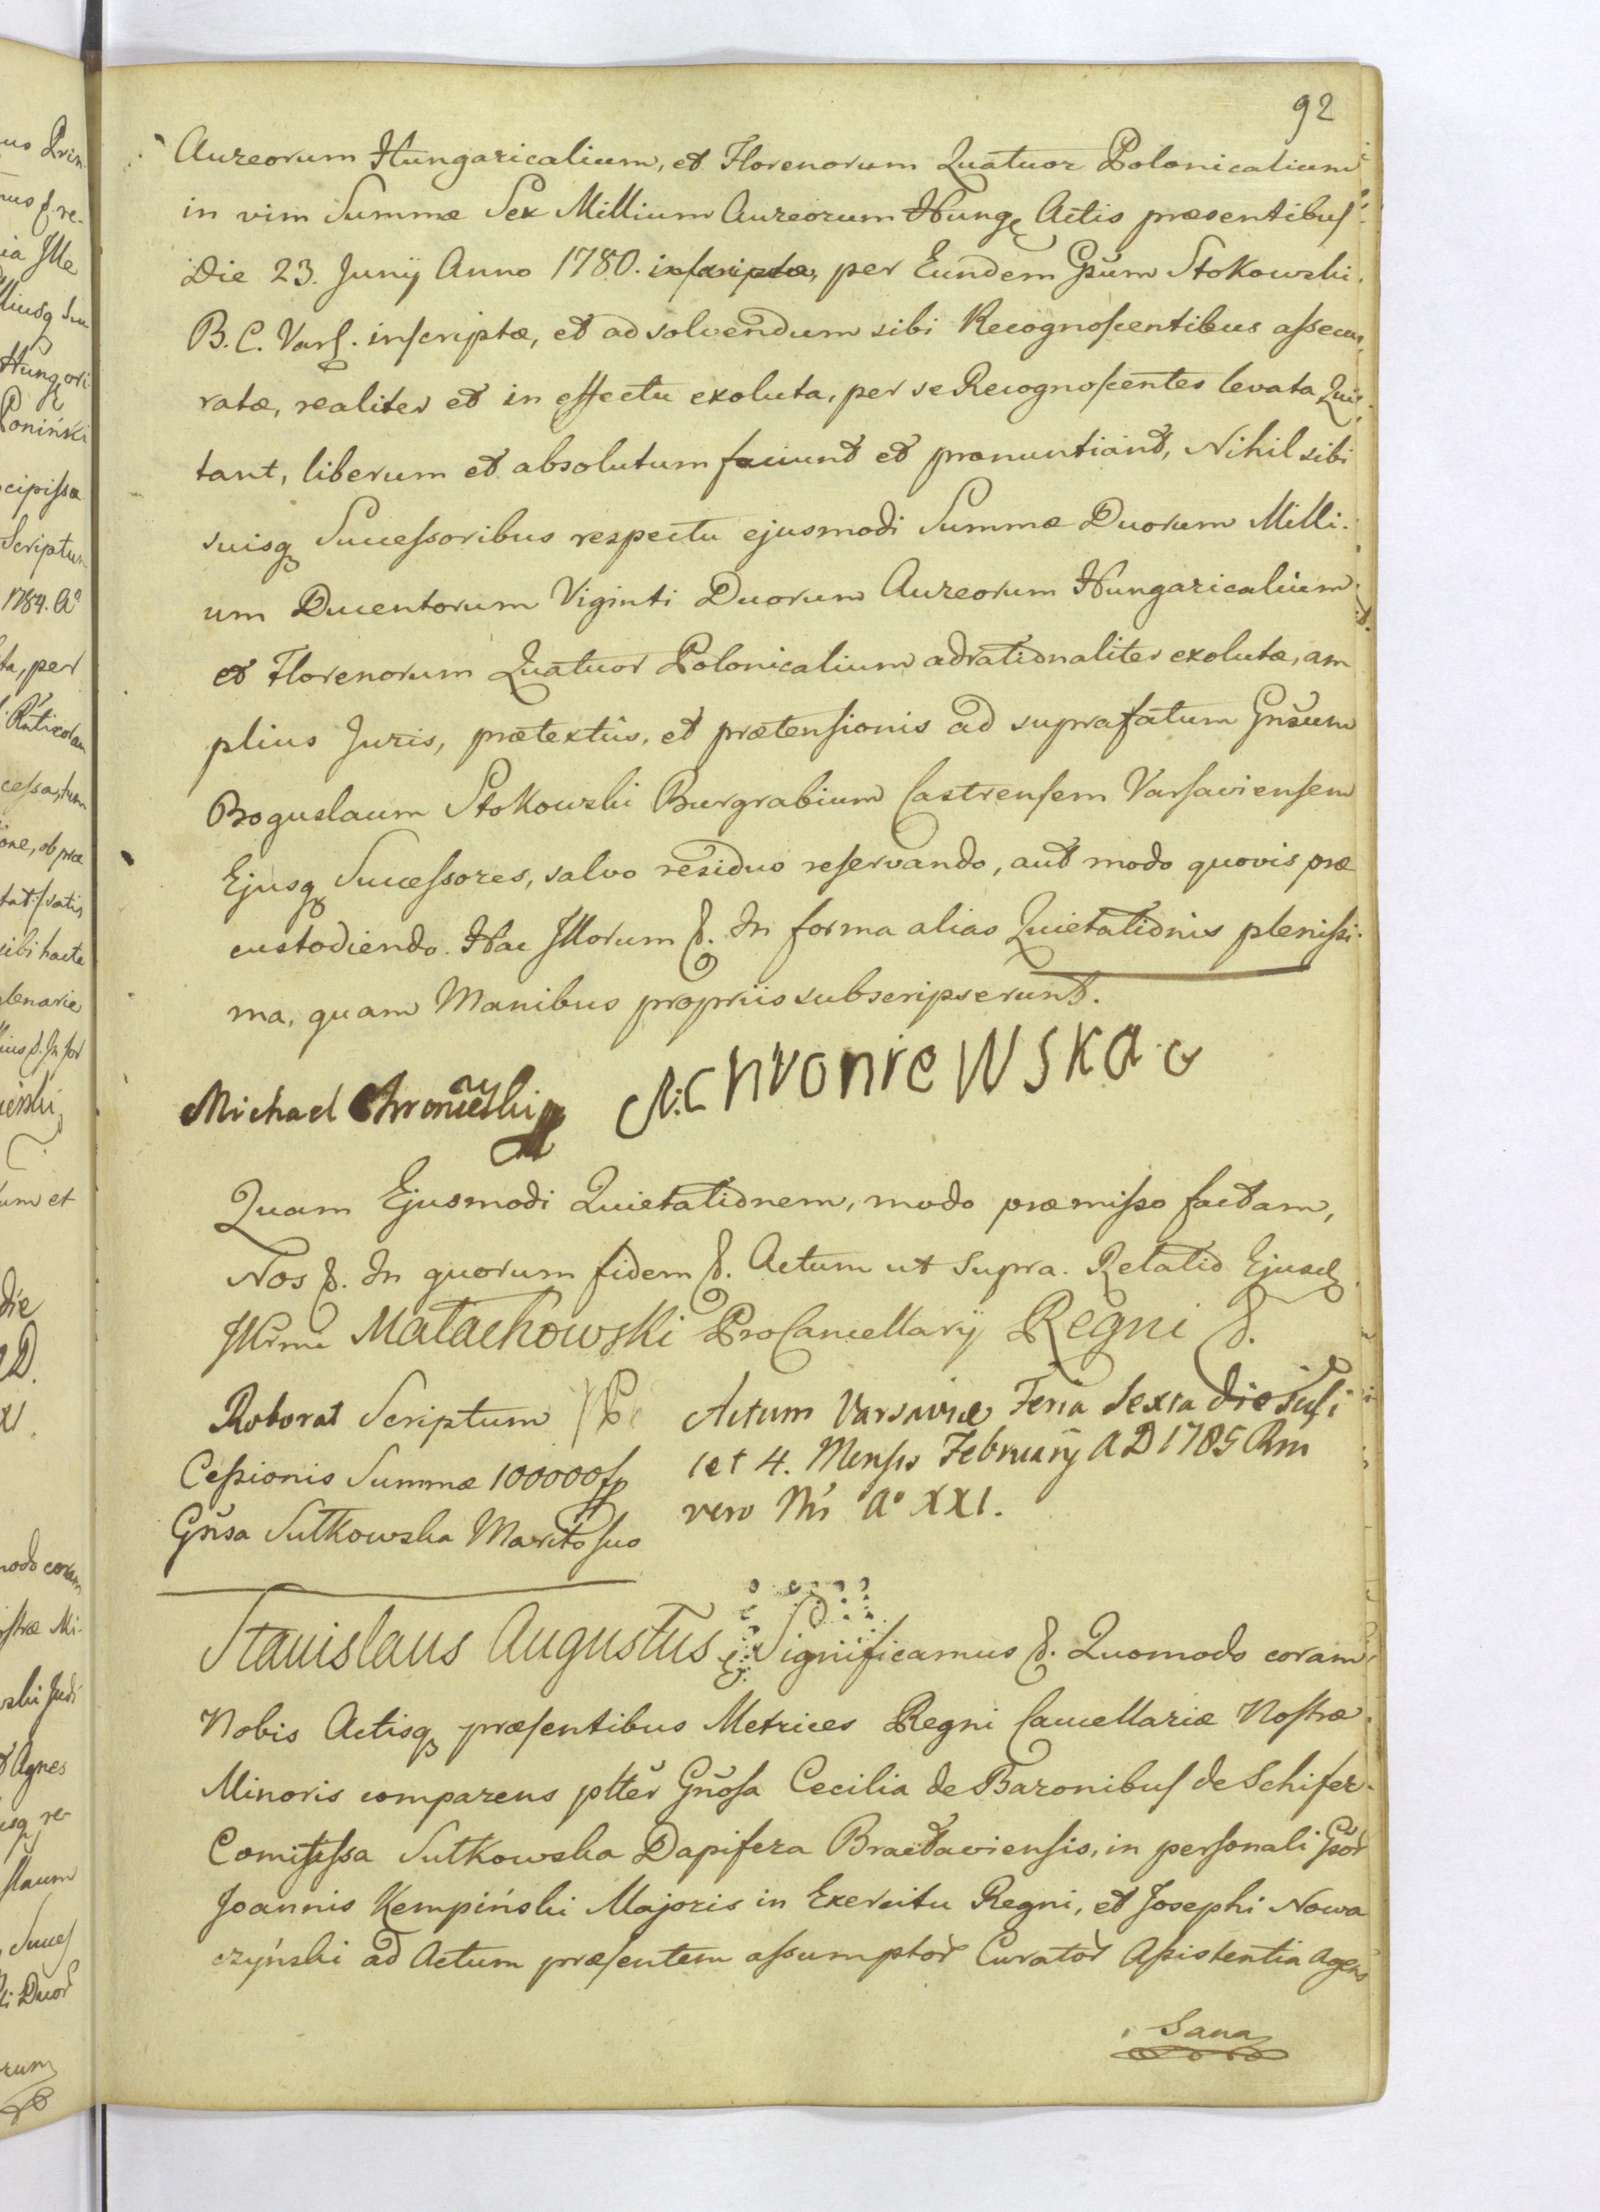 92
Aureorum Hungaricalium, et Florenorum Quatuor Polonicalium
in vim Summæ Sex Millium Aureorum Hung. Actis præsentibus
Die 23. Junij Anno 1780. inscriptæ, per Eundem Gsum Stokowski
B. C. Vars. inscriptæ, et ad solvendum sibi Recognoscentibus assecu
ratæ, realiter et in effectu exoluta, per se Recognoscentes levata Quie
tant, liberum et absolutum faciunt et pronuntiant, Nihil sibi
suisq Successoribus respectu ejusmodi Summæ Duorum Milli
um Ducentorum Viginti Duorum Aureorum Hungaricalium
et Florenorum Quatuor Polonicalium adrationaliter exolutæ, am
plius Juris, prætextûs, et prætensionis ad suprafatum Gnsum
Boguslaum Stokowski Burgrabium Castrensem Varsaviensem
Ejusq Successores, salvo residuo reservando, aut modo quovis præ
custodiendo. Hac Illorum &. In forma alias Quietationis plenissi-
ma, quam Manibus propriis subscripserunt.
Michael Chroniewski M. Chroniewska
Quam Ejusmodi Quietationem, modo præmisso factam,
Nos &. In quorum fidem &. Actum ut supra. Relatio Ejusd
Illrmi Małachowski ProCancellarij Regni &.
Roborat Scriptum
Cessionis Summæ 100000 fp
Gnsa Sułkowska Marito suo
Actum Varsaviæ Feria Sexta die
et 4. Mensis Februarij A D 1785 Rni
vero Nri Aº XXI.
Stanislaus Augustus & Significamus &. Quomodo coram
Nobis Actisq præsentibus Metrices Regni Cancellariæ Nostræ
Minoris comparens pltter Gnosa Cecilia de Baronibus de Schifer
Comitissa Sułkowska Dapifera Bracłaviensis, in personali Gsor
Joannis Kempiński Majoris in Exercitu Regni, et Josephi Nowa
czyński ad Actum præsentem assumptor Curator Assistentia Agens
Sana